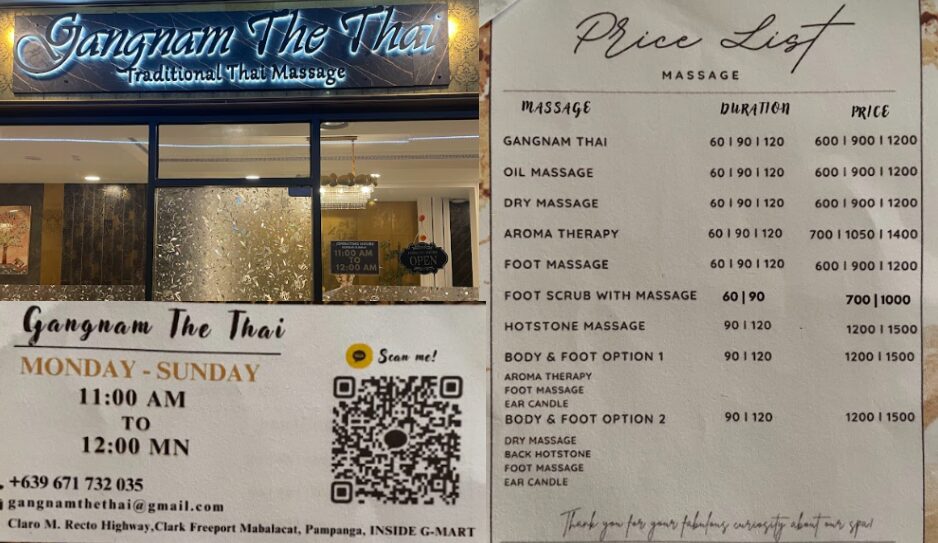 Gangnam The Thai
Traditional Thai Massage
11:00 AM
TO
12:00 AM
OPEN
Gangnam The Thai
MONDAY - SUNDAY
11:00 AM
TO
12:00 MN
Scan me!
+639 671 732 035
gangnamthethai@gmail.com
Claro M. Recto Highway,Clark Freeport Mabalacat, Pampanga, INSIDE G-MART
Price List
MASSAGE
MASSAGE DURATION PRICE
GANGNAM THAI 60 | 90 | 120 600 | 900 | 1200
OIL MASSAGE 60 | 90 | 120 600 | 900 | 1200
DRY MASSAGE 60 | 90 | 120 600 | 900 | 1200
AROMA THERAPY 60 | 90 | 120 700 | 1050 | 1400
FOOT MASSAGE 60 | 90 | 120 600 | 900 | 1200
FOOT SCRUB WITH MASSAGE 60 | 90 700 | 1000
HOTSTONE MASSAGE 90 | 120 1200 | 1500
BODY & FOOT OPTION 1 90 | 120 1200 | 1500
AROMA THERAPY
FOOT MASSAGE
EAR CANDLE
BODY & FOOT OPTION 2 90 | 120 1200 | 1500
DRY MASSAGE
BACK HOTSTONE
FOOT MASSAGE
EAR CANDLE
Thank you for your fabulous curiosity about our spa!